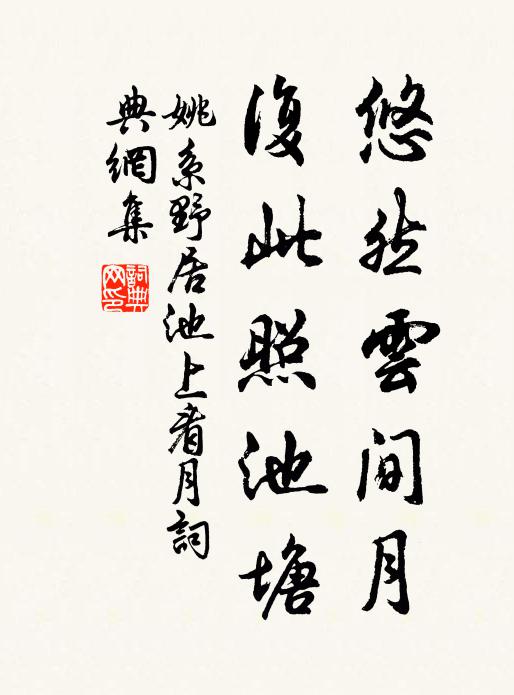 悠然雲間月
復此照池塘
姚系野居池上看月詞
典網集
詞典網印